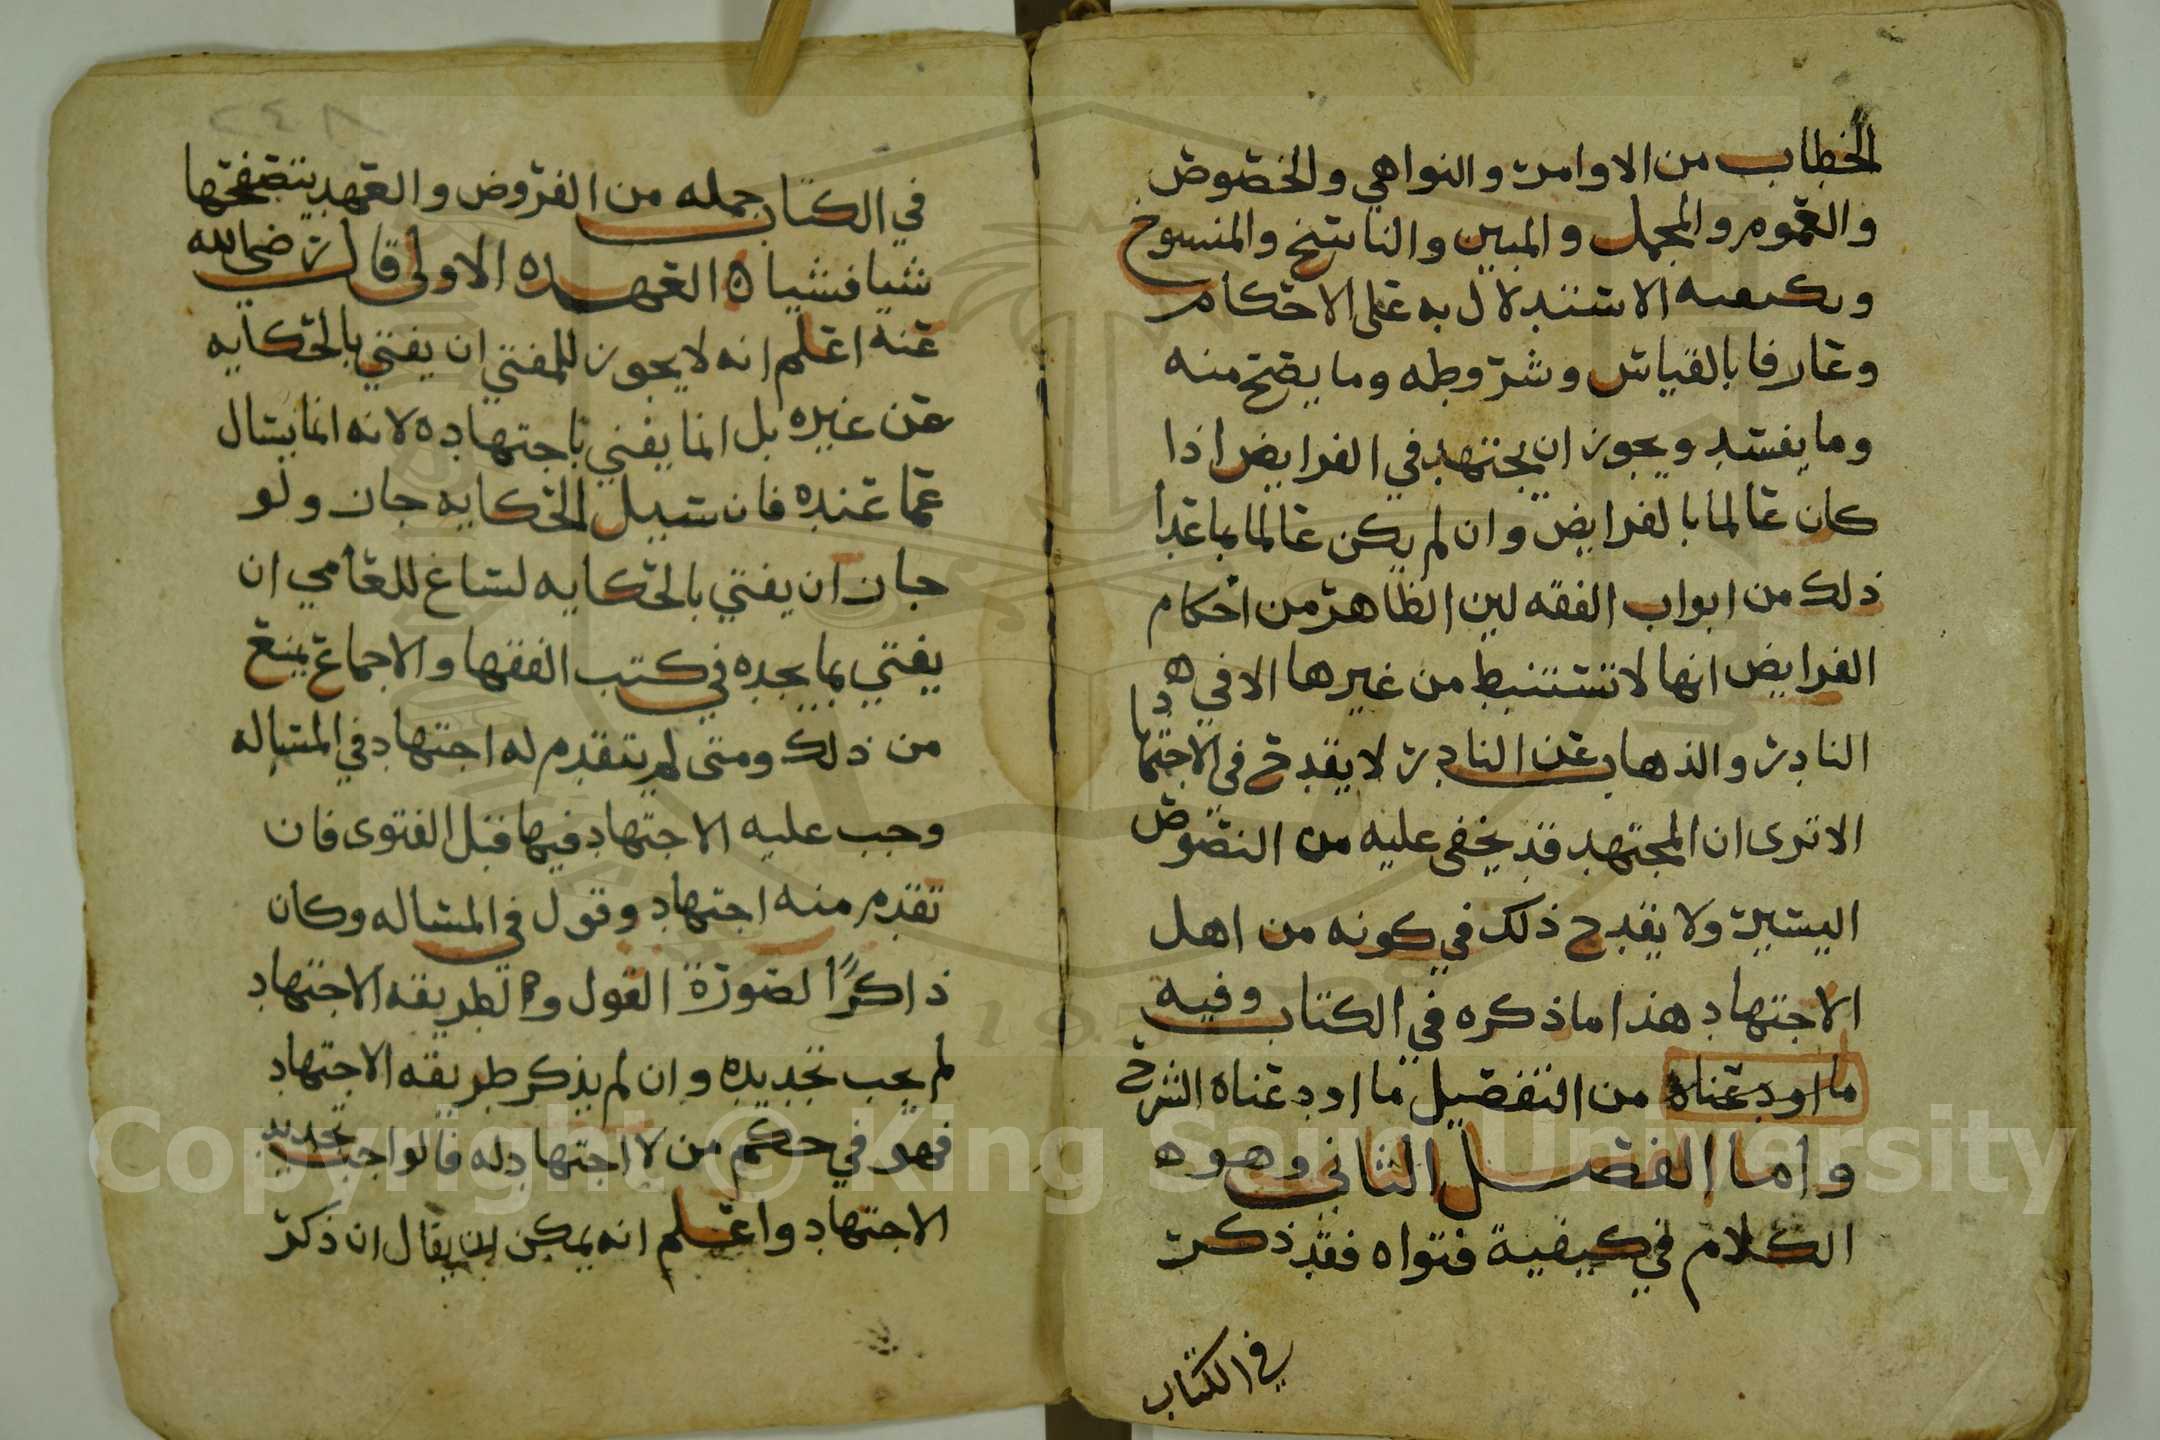 الخطاب من الاوامر والنواهي والخصوص
والعموم والمجمل والمبين والناسخ والمنسوخ
وبكيفيه الاستدلال به على الاحكام
وعارفا بالقياس وشروطه وما يصح منه
وما يفسد ويجوز ان يجتهد في الفرايض اذا
كان عالما بالفرايض وان لم يكن عالما بما عدا
ذلك من ابواب الفقه لين الظاهر من احكام
الفرايض انها لا تستنبط من غيرها الا في ه
النادر والذهاب عن النادر لا يقدح في الاجتهاد
الا ترى ان المجتهد قد يخفى عليه من النصوص
اليسير ولا يقدح ذلك في كونه من اهل
الاجتهاد هذا ما ذكره في الكتاب وفيه
ما اودعناه من التفصيل ما اودعناه الشرح
واما الفصل الثاني وهو ه
الكلام في كيفية فتواه فقد ذكر
في الكتاب
٢٤٨
في الكتاب جمله من الفروض والعهد يتصفحها
شيا فشيا ه العهده الاولى قال رضي الله
عنه اعلم انه لا يجوز للمفتي ان يفتي بالحكايه
عن غيره بل انما يفتي باجتهاده لانه انما يسال
عما عنده فان سيل الحكايه جاز ولو
جاز ان يفتي بالحكايه لساغ للعامي ان
يفتي بما يجده في كتب الفقها والاجماع يمنع
من ذلك ومتى لم يتقدم له اجتهاد في المساله
وجب عليه الاجتهاد فيها قبل الفتوى فان
تقدم منه اجتهاد وقول في المساله وكان
ذاكرًا لصورة القول ولطريقه الاجتهاد
لم يجب تجديده وان لم يذكر طريقه الاجتهاد
فهو في حكم من لا اجتهاد له فالواجب تجديد
الاجتهاد واعلم انه يمكن ان يقال ان ذكر
Copyright © King Saud University
1957